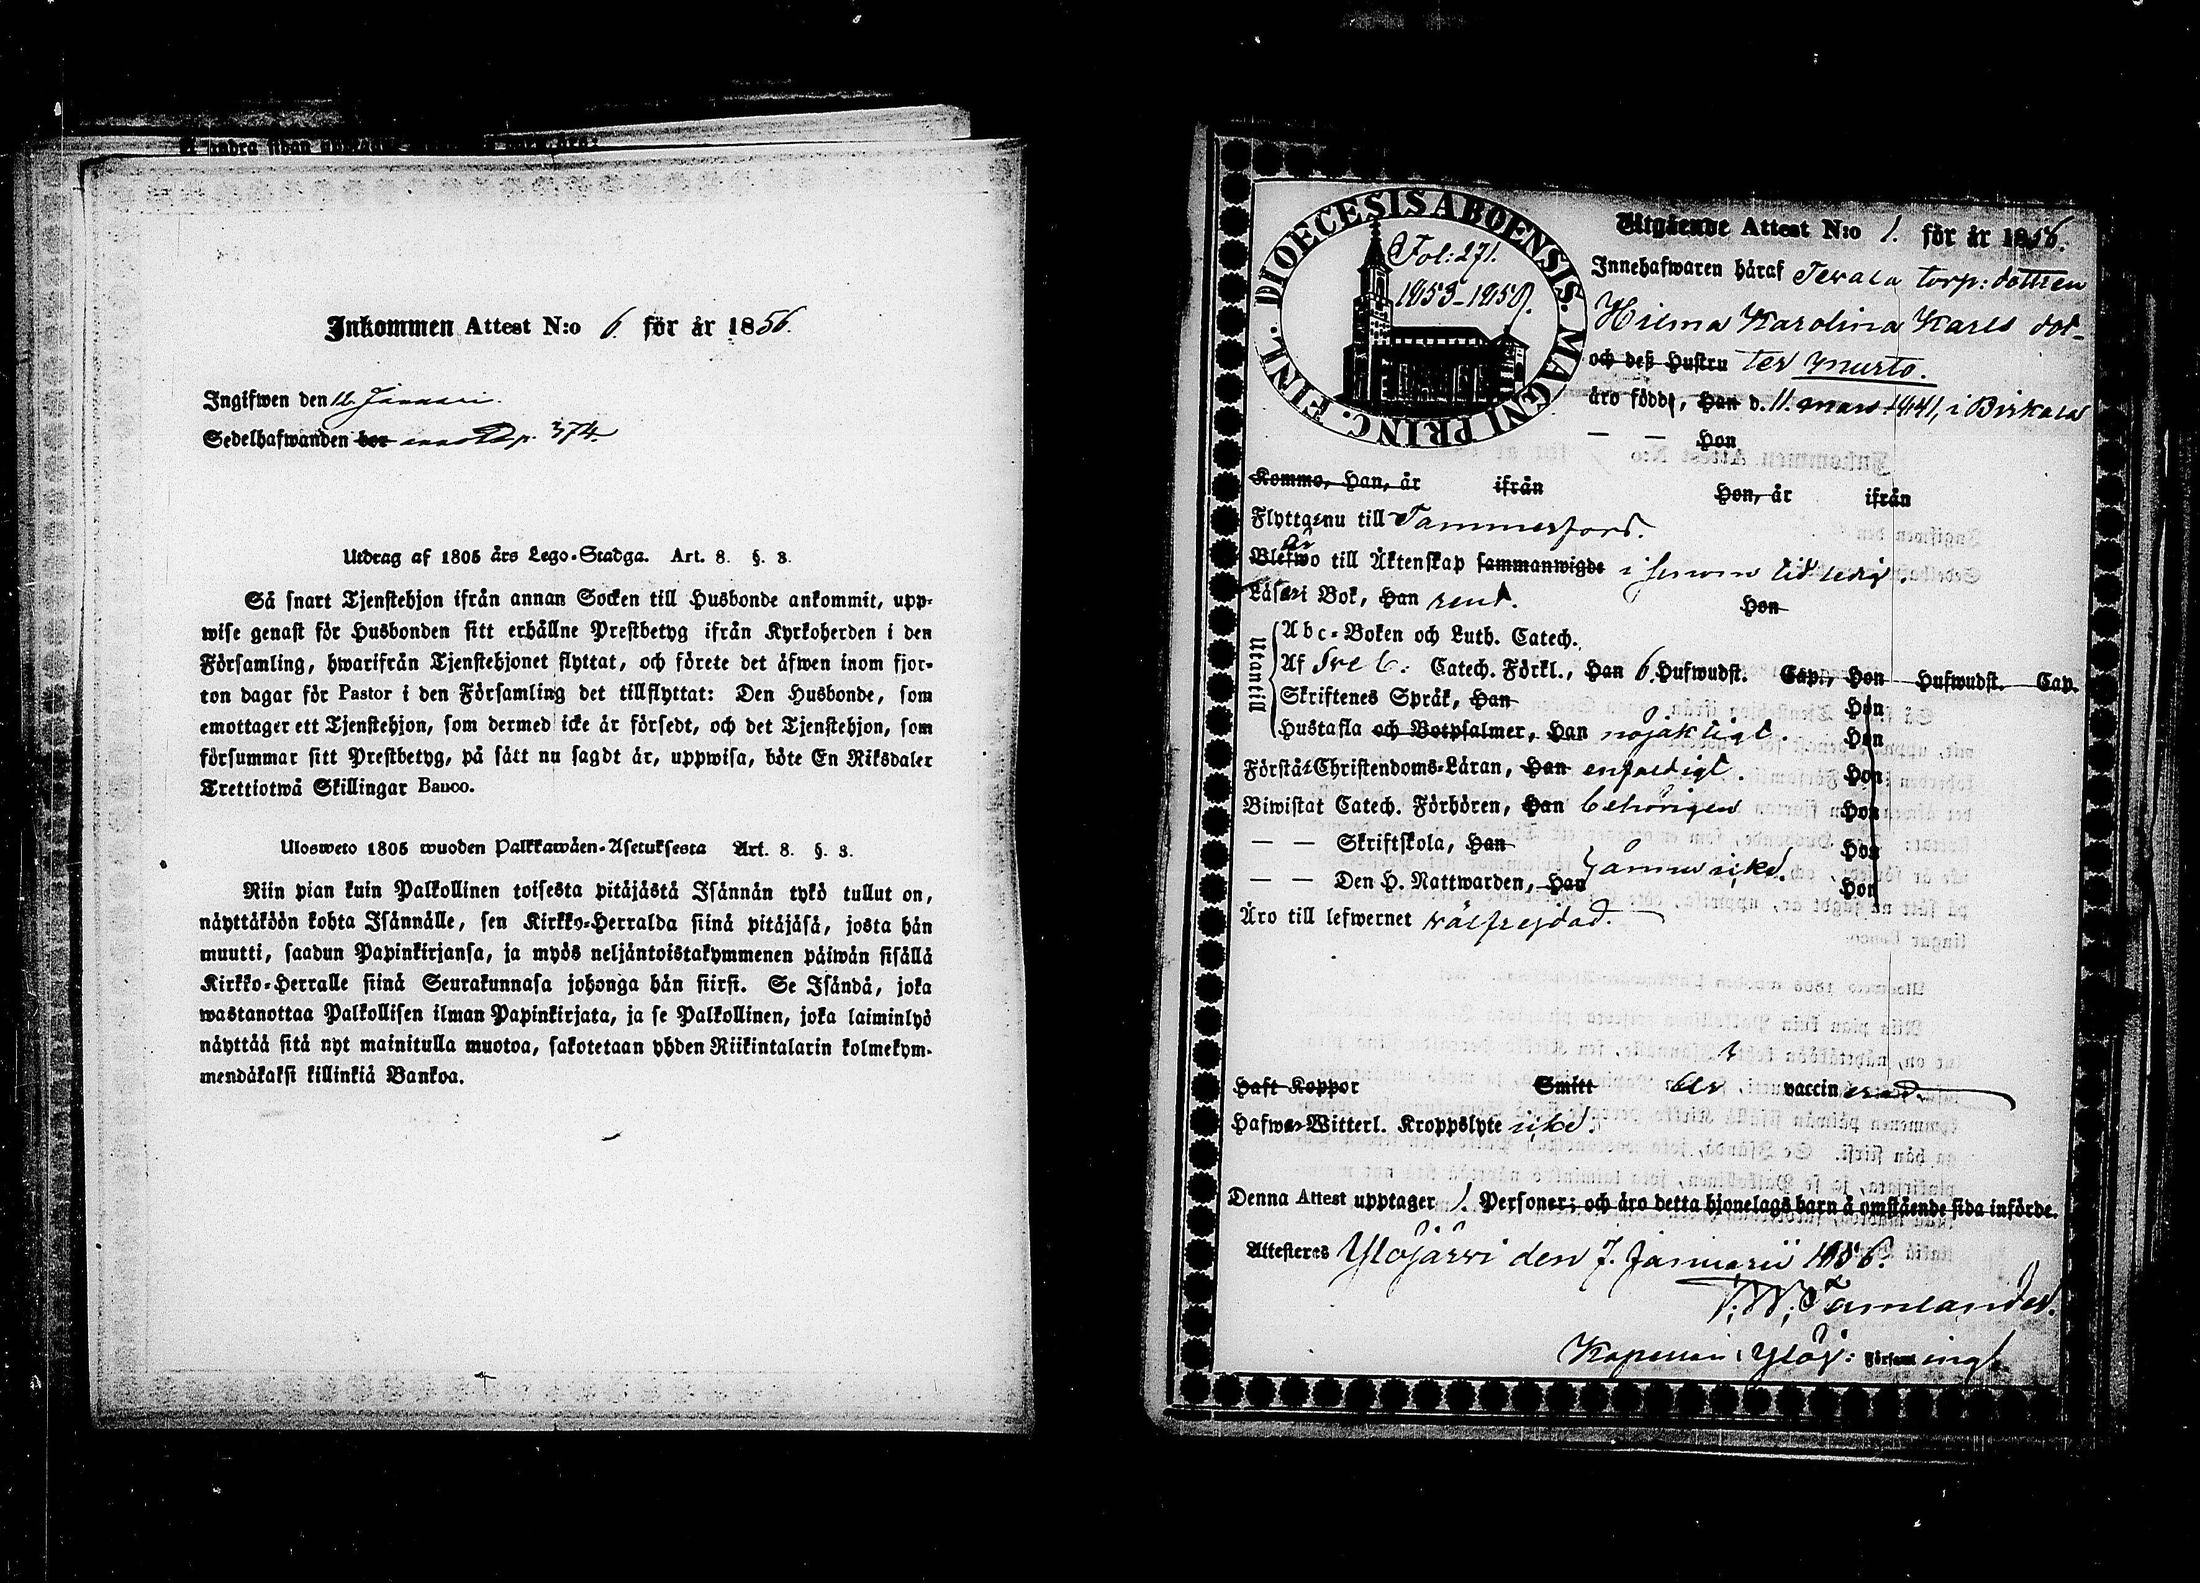 Inkommen Attest N:o 6. för år 1856.
Ingifwen den 12. Januari.
Sedelhafwanden bor p. 374.
Utdrag af 1805 års Lego-Stadga. Art. 8. §. 3.
Så snart Tjenstehjon ifrån annan Socken till Husbonde ankommit, upp-
wise genast för Husbonden sitt erhållne Prestbetyg ifrån Kyrkoherden i den
Församling, hwarifrån Tjenstehjonet flyttat, och förete det äfwen inom fjor-
ton dagar för Pastor i den Församling det tillflyttat: Den Husbonde, som
emottager ett Tjenstehjon, som dermed icke är försedt, och det Tjenstehjon, som
försummar sitt Prestbetyg, på sätt nu sagdt är, uppwisa, böte En Riksdaler
Trettiotwå Skillingar Banco.
Ulosweto 1805 wuoden Palkkawäen-Asetuksesta Art. 8. §. 3.
Niin pian kuin Palkollinen toisesta pitäjästä Isännän tykö tullut on,
näyttäköön kohta Isännälle, sen Kirkko-Herralda siinä pitäjäsä, josta hän
muutti, saadun Papinkirjansa, ja myös neljäntoistakymmenen päiwän sisällä
Kirkko-Herralle siinä Seurakunnasa johonga hän siirsi. Se Isändä, joka
wastanottaa Palkollisen ilman Papinkirjata, ja se Palkollinen, joka laiminlyö
näyttää sitä nyt mainitulla muotoa, sakotetaan yhden Riikintalarin kolmekym-
mendäkaksi killinkiä Bankoa.
DIOECESIS ABOENSIS. MAGNI PRINC. FINL.
Fol: 271.
1853-1859.
Utgående Attest N:o 1. för år 1856.
Innehafwaren häraf Terala torp: dottren
Hilma Karolina Karls dot-
och deß Hustru ter Murto.
äro födde, Han d. 11. mars 1841, i Birkala
— — Hon
Kommo, Han, år ifrån Hon, år ifrån
Flyttar nu till Tammerfors.
är
Blefwo till Äktenskap sammanwigde i genom tid ledig.
Läser i Bok, Han rent. Hon
Utantill
Abc-Boken och Luth. Catech.
Af Sve b: Catech. Förkl., Han 6. Hufwudst. Cap., Hon Hufwudst. Cap.
Skriftenes Språk, Han Hon
Hustafla och Botpsalmer, Han nöjaktigt. Hon
Förstår Christendoms-Läran, Han enfaldigt. Hon
Biwistat Catech. Förhören, Han behörigen Hon
— — Skriftskola, Han Hon
— — Den H. Nattwarden, Han ännu icke. Hon
Äro till lefwernet wälfrejdad.
Haft Koppor Smitt är vaccinerad.
Hafwer Witterl. Kroppslyte icke.
Denna Attest upptager 1. Personer; och äro detta hjonelags barn å omstående sida införde.
Attesteres Ylöjärwi den 7. Januarii 1856.
Kapellan i Ylöj: Församlingl